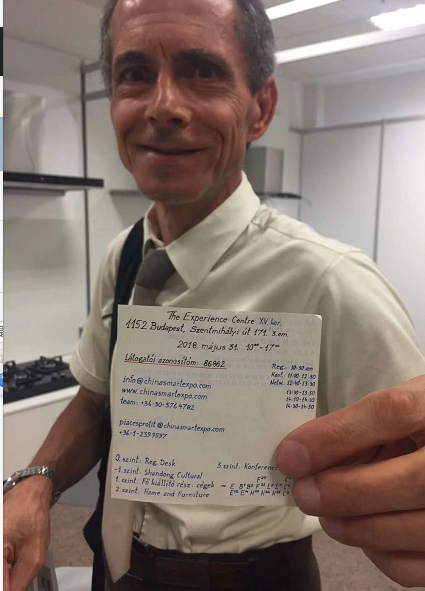 The Experience Centre XV. ker.
1152 Budapest, Szentmihályi út 171. 3.em.
2018. május 31. 10⁰⁰-17⁰⁰
Látogatói azonosítóm: 86862
Reg.: 10-30 am
info@chinasmartexpo.com
www.chinasmartexpo.com
team: +36-30-5764782
piacesprofit@chinasmartexpo.com
+36-1-2399597
0.szint: Reg. Desk
-1.szint: Shandong Cultural
1.szint: Fő kiállító rész: cégek
2.szint: Home and Furniture
3.szint: Konferencia